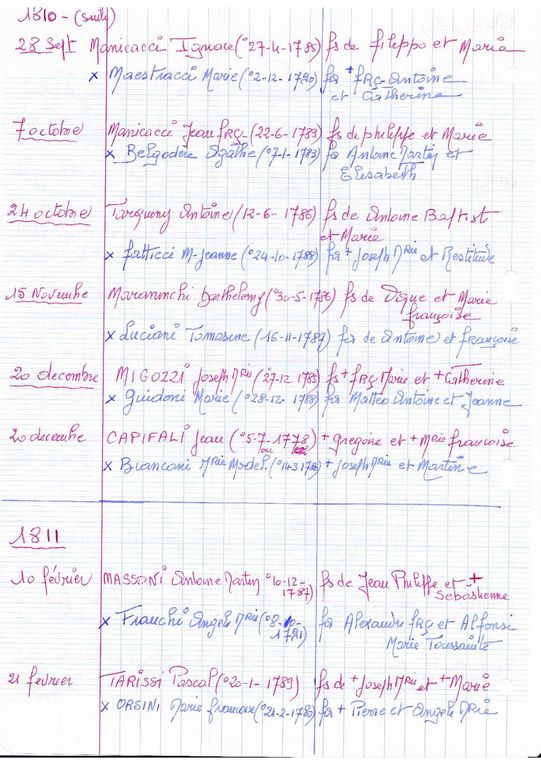 1810 - (suite)
28 Sept Manicacci Ignace (°27-4-1785) fs de filippo et Maria
x Maestracci Marie (°2-12-1790) fa + frç-Antoine
et Catherine
7 octobre Manicacci Jean frç (22-6-1783) fs de philippe et Marie
x Belgodère Agathe (°7-1-1783) fa Antoine Martin et
Elisabeth
24 octobre Antoine (12-6-1786) fs de Antoine Baptist
et Marie
x fatticci M-Jeanne (°24-10-1788) fa + Joseph Mrie et Restitude
15 Novembre Maraninchi Barthelemy (°30-5-1786) fs de et Marie
françoise
x Luciani Tomasine (16-11-1787) fa de Antoine et françoise
20 décembre MIGOZZI Joseph Mrie (27-12 1785) fs + frç Marie et + Catherine
x Guidoni Marie (°28-12-1788) fa Matteo Antoine et Jeanne
20 decembre CAPIFALI Jean (°5-7-1778) + gregoire et + Mrie francoise
ou
x Bianconi Mrie + Joseph Mrie et Martine
1811
10 février MASSONI Antoine Martin °10-12-
1787) fs de Jean Philippe et +
Sebastienne
x Franchi Angele Mrie (°8-10-
1791) fa Alexandre frç et Alfonsi
Marie Toussainte
21 fevrier TARISSI Pascal (°20-1-1789) fs de + Joseph Mrie et + Marie
x ORSINI Marie francoise (°21-2-1786) fa + Pierre et Angele Mrie